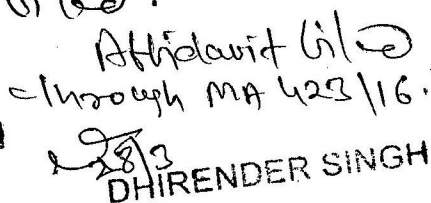 Affidavit filed
through MA 423/16.
28/3
DHIRENDER SINGH